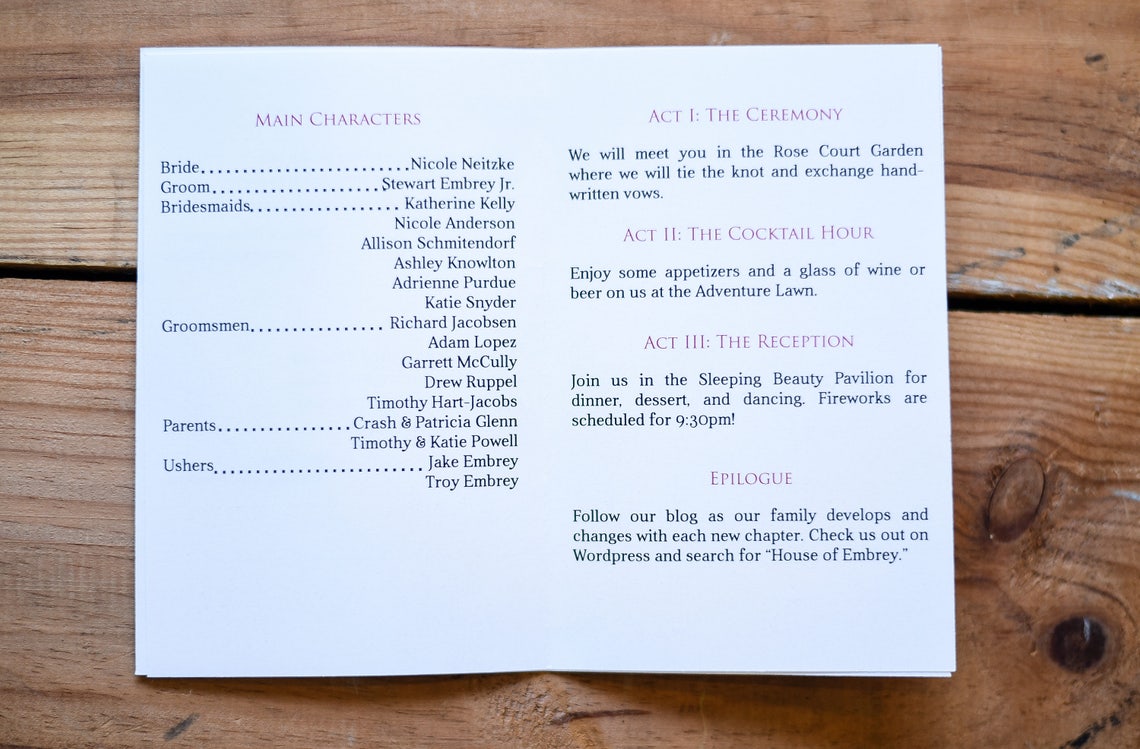 Main Characters
Bride........................Nicole Neitzke
Groom...................Stewart Embrey Jr.
Bridesmaids.................Katherine Kelly
Nicole Anderson
Allison Schmitendorf
Ashley Knowlton
Adrienne Purdue
Katie Snyder
Groomsmen...............Richard Jacobsen
Adam Lopez
Garrett McCully
Drew Ruppel
Timothy Hart-Jacobs
Parents...............Crash & Patricia Glenn
Timothy & Katie Powell
Ushers........................Jake Embrey
Troy Embrey
Act I: The Ceremony
We will meet you in the Rose Court Garden
where we will tie the knot and exchange hand-
written vows.
Act II: The Cocktail Hour
Enjoy some appetizers and a glass of wine or
beer on us at the Adventure Lawn.
Act III: The Reception
Join us in the Sleeping Beauty Pavilion for
dinner, dessert, and dancing. Fireworks are
scheduled for 9:30pm!
Epilogue
Follow our blog as our family develops and
changes with each new chapter. Check us out on
Wordpress and search for “House of Embrey.”